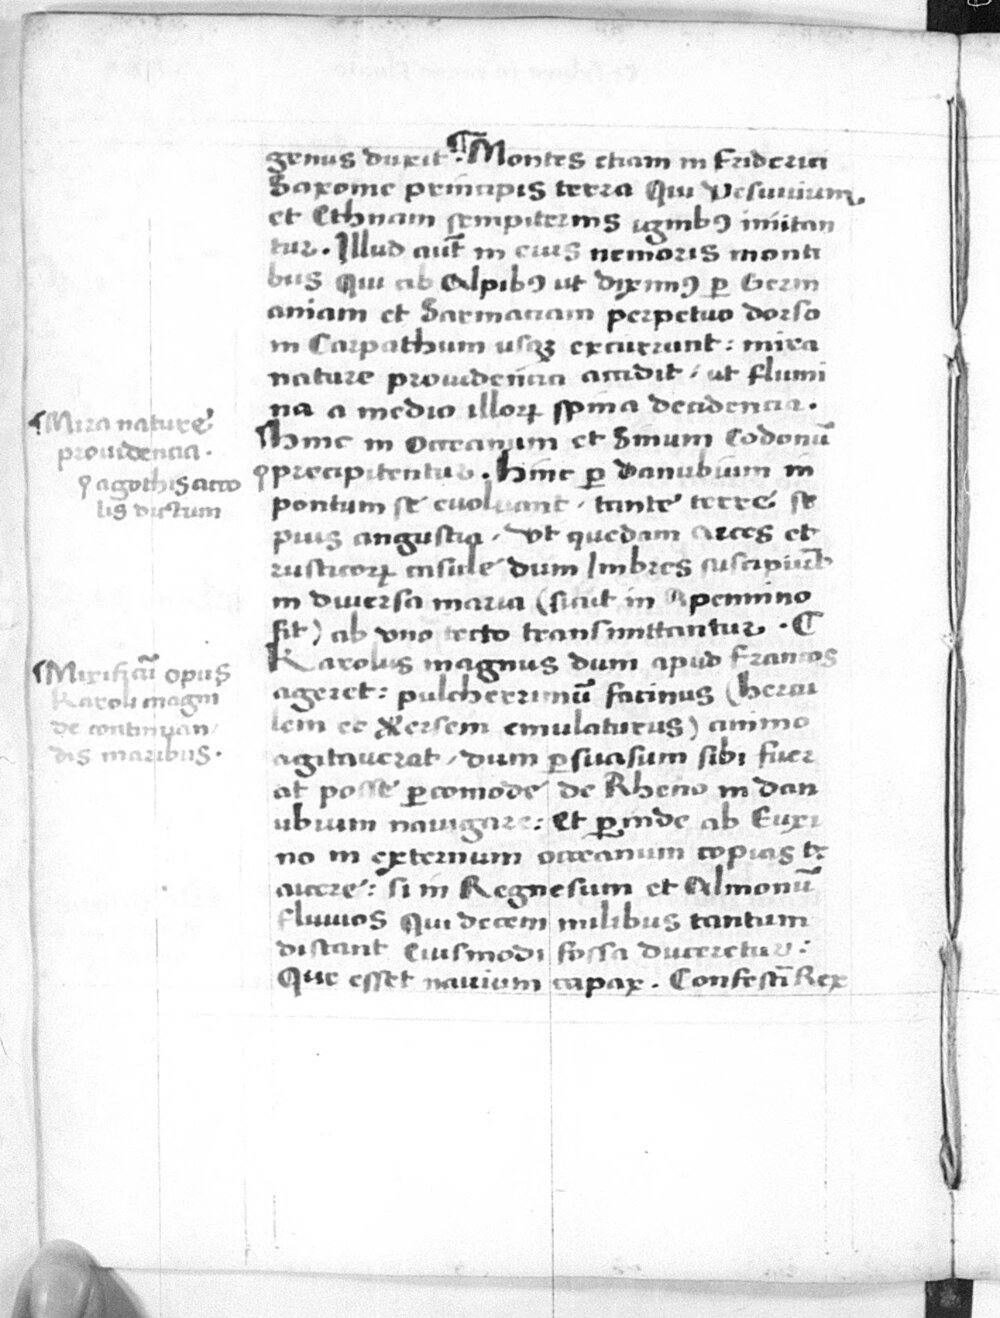 genus duxit. ¶ Montes etiam in Friderici
Saxonie principis terra Qui Vesuuium,
et Ethnam sempiternis ignibꝰ imitan
tur. Illud aut̄ in eius nemoris monti
bus Qui ab Alpibꝰ ut diximꝰ ꝑ Germ
aniam et Sarmaciam perpetuo dorso
in Carpathum usqꝫ excurrunt: mira
nature prouidencia accidit, ut flumi
na a medio illoꝝ spina decidencia.
Hinc in Occeanum et Sinum Codonū
precipitentur. hinc ꝑ Danubium in
pontum se euoluant, tante terre se
pius angustia, Vt quedam arces et
rusticoꝝ insule dum Imbres suscipiūt
in diuersa maria (sicut in Apennino
fit) ab vno tecto transmittantur. ¶
Karolus magnus dum apud Francos
ageret: pulcherrimū facinus (hercu
lem et Xersem emulaturus) animo
agitauerat, dum ꝑsuasum sibi fuer
at posse ꝑcomode de Rheno in dan
ubium nauigare: Et ꝑinde ab Euxi
no in externum occeanum copias tr
aicere: si in Regnesum et Almonū
fluuios Qui decem milibus tantum
distant Eiusmodi fossa duceretur:
Que esset nauium capax. Confestī Rex
¶ Mira nature
prouidencia.
a gothis acco
lis dictum
¶ Mirificū opus
Karoli magni
de continuan/
dis maribus.